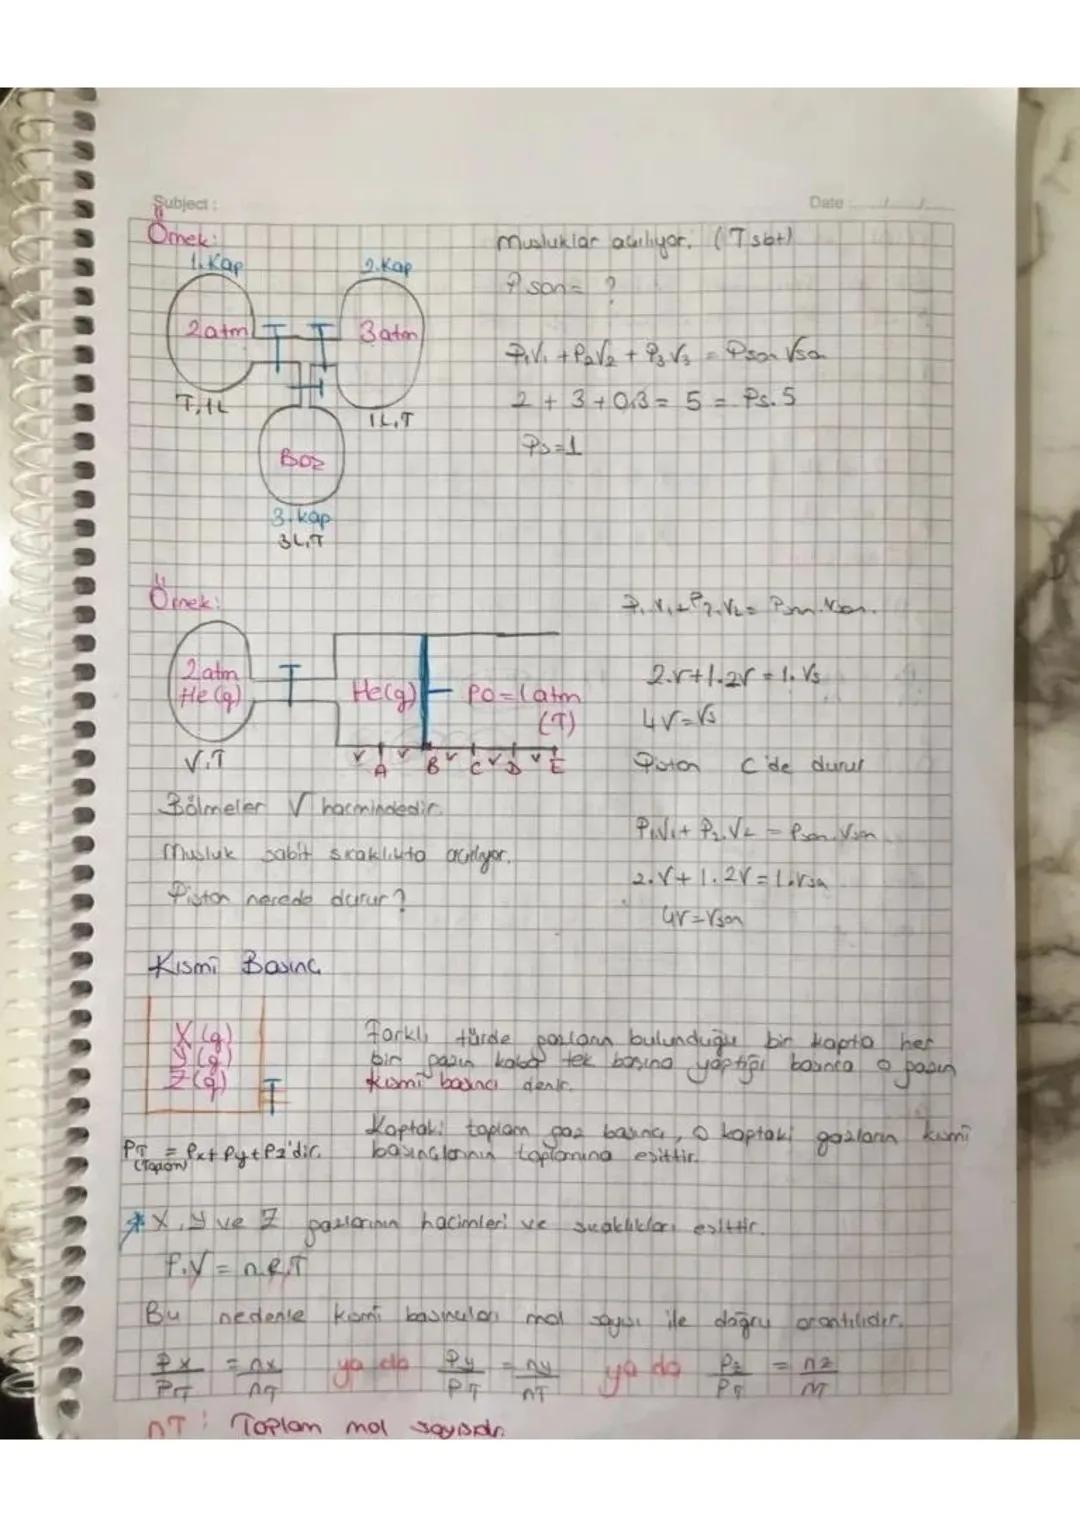 Subject :
Date : ..../..../....
Örnek:
1. Kap
2. Kap
2 atm
3 atm
T, 1L
1L, T
Boz
3. Kap
3L, T
Musluklar açılıyor. (T sbt)
P son = ?
P₁V₁ + P₂V₂ + P₃V₃ = Pson Vson
2 + 3 + 0.3 = 5 = Ps. 5
Ps=1
Örnek:
2 atm
He (g)
V, T
He(g)
P0=1 atm
(T)
V V V V V
A B C D E
Bölmeler V hacmindedir.
Musluk sabit sıcaklıkta açılıyor.
Piston nerede durur?
P₁.V₁+P₂.V₂= Pson.Vson.
2.V+1.2V = 1. Vs
4V=Vs
Piston C'de durur
P₁V₁+ P₂.V₂ = Pson.Vson
2.V+ 1.2V = 1.Vson
4V=Vson
Kısmi Basınç
X (g)
Y (g)
Z (g)
Farklı türde gazların bulunduğu bir kapta her
bir gazın kaba tek başına yaptığı basınca o gazın
kısmi basıncı denir.
Kaptaki toplam gaz basıncı, o kaptaki gazların kısmi
basınçlarının toplamına eşittir.
PT = Px+ Py+Pz'dir.
(Toplam)
* X, Y ve Z gazlarının hacimleri ve sıcaklıkları eşittir.
P.V = n.R.T
Bu nedenle kısmi basınçları mol sayısı ile doğru orantılıdır.
Px/PT = nx/nT ya da Py/PT = ny/nT ya da Pz/PT = nz/nT
nT : Toplam mol sayısıdır.